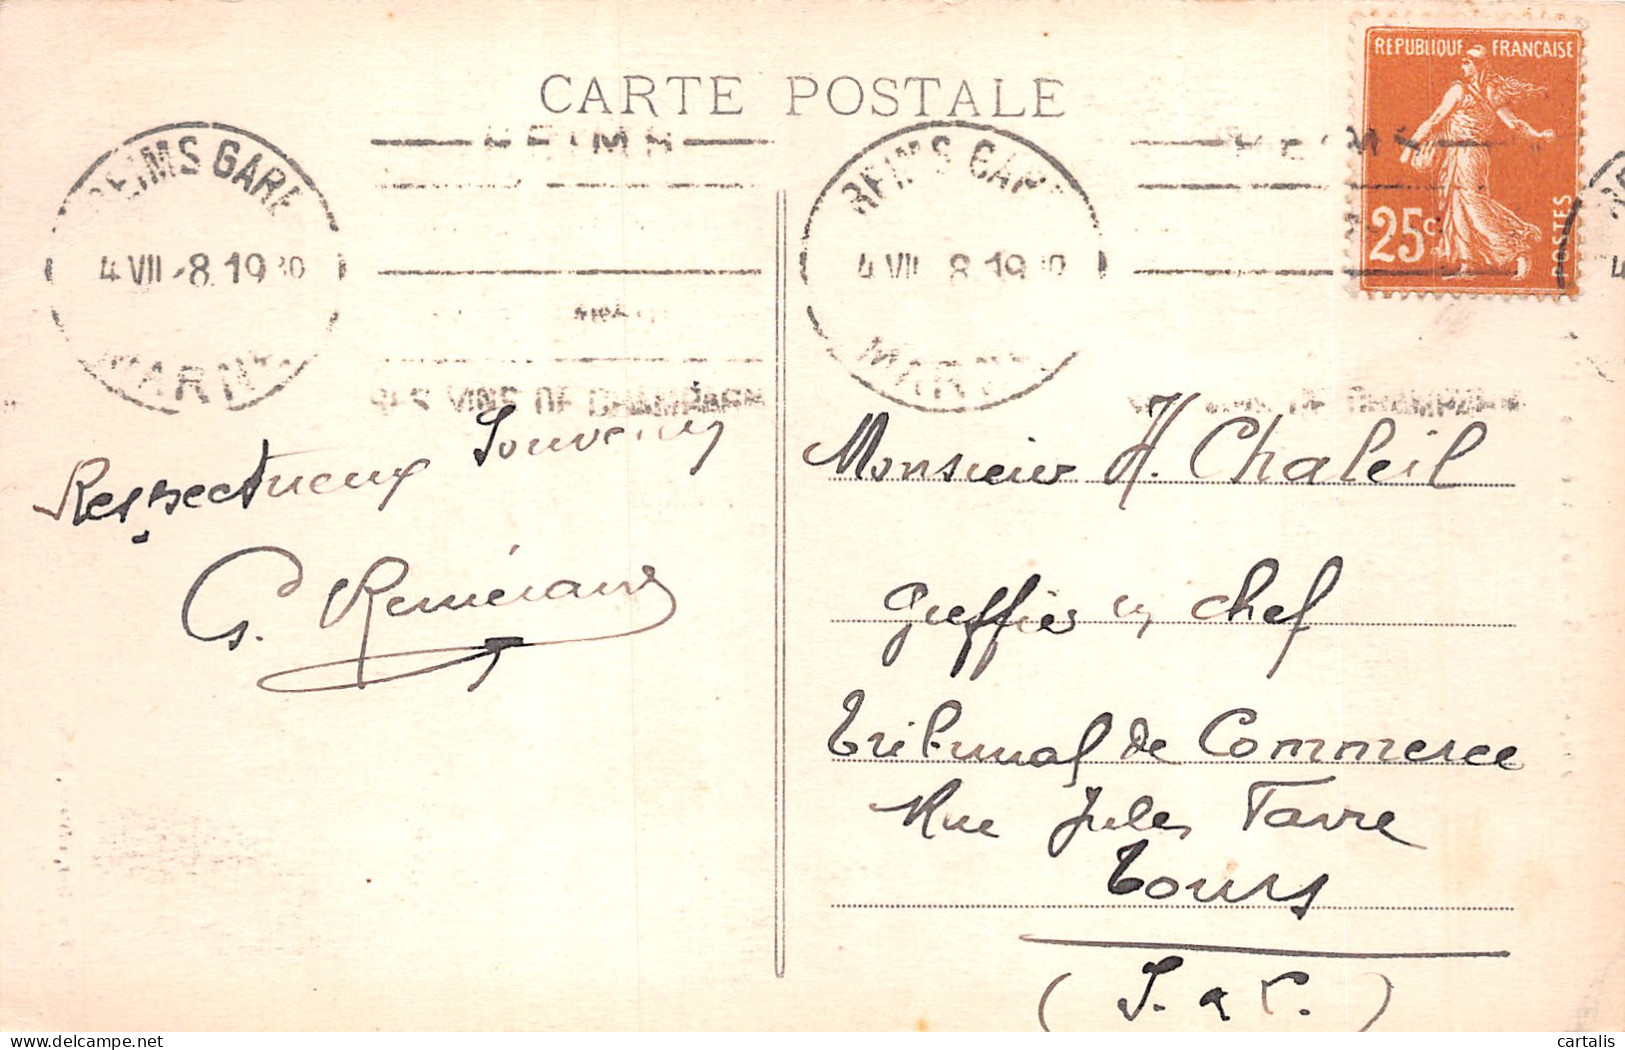 CARTE POSTALE
REPUBLIQUE FRANÇAISE
25c
POSTES
REIMS GARE
4 VII 8. 19 30
MARNE
REIMS
SES VINS DE CHAMPAGNE
REIMS GARE
4 VII 8 19 30
MARNE
REIMS
DE CHAMPAGNE
Respectueux Souvenirs
G.
Monsieur H. Chaleil
Greffier en chef
Tribunal de Commerce
Rue Jules Favre
Tours
(I. & L.)
cartalis